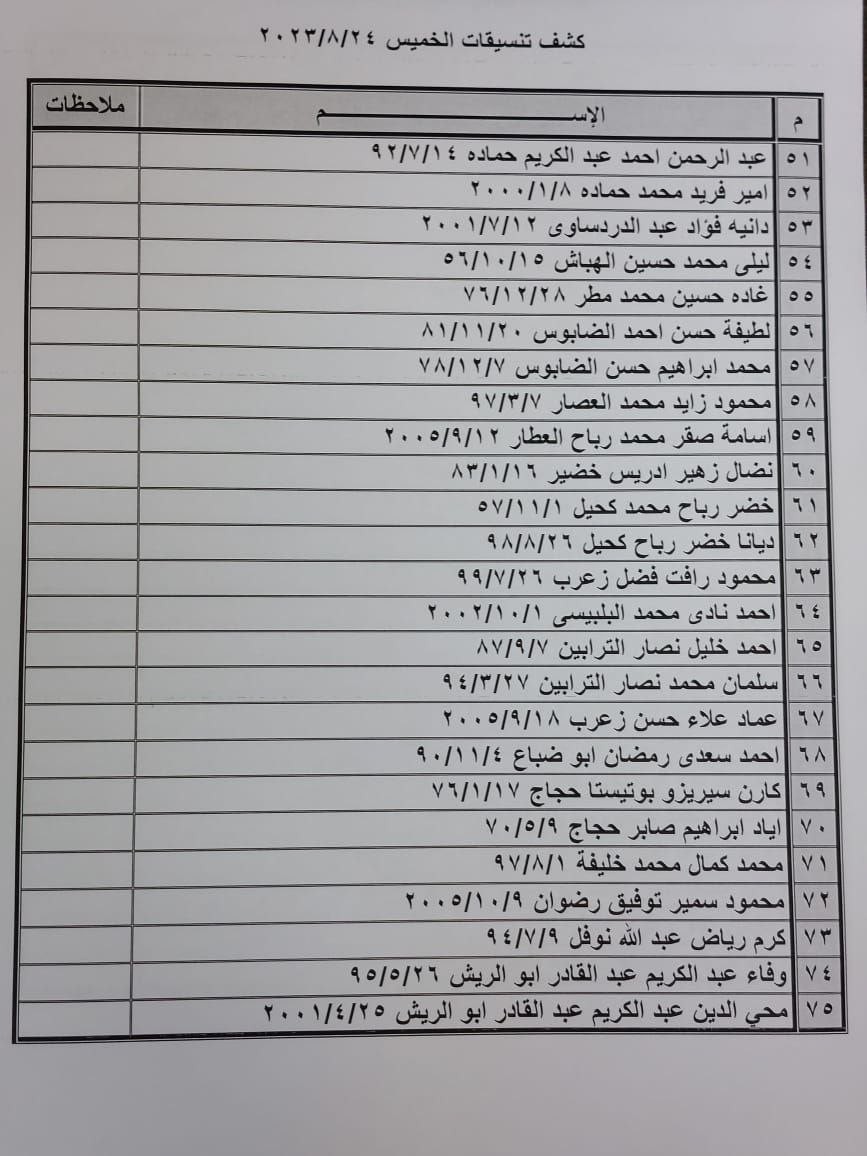 كشف تنسيقات الخميس ٢٠٢٣/٨/٢٤
م الإســـــــــــــــــــــــم ملاحظات
٥١ عبد الرحمن احمد عبد الكريم حماده ٩٢/٧/١٤
٥٢ امير فريد محمد حماده ٢٠٠٠/١/٨
٥٣ دانيه فؤاد عبد الدردساوى ٢٠٠١/٧/١٢
٥٤ ليلى محمد حسين الهباش ٥٦/١٠/١٥
٥٥ غاده حسين محمد مطر ٧٦/١٢/٢٨
٥٦ لطيفة حسن احمد الضابوس ٨١/١١/٢٠
٥٧ محمد ابراهيم حسن الضابوس ٧٨/١٢/٧
٥٨ محمود زايد محمد العصار ٩٧/٣/٧
٥٩ اسامة صقر محمد رباح العطار ٢٠٠٥/٩/١٢
٦٠ نضال زهير ادريس خضير ٨٣/١/١٦
٦١ خضر رباح محمد كحيل ٥٧/١١/١
٦٢ ديانا خضر رباح كحيل ٩٨/٨/٢٦
٦٣ محمود رافت فضل زعرب ٩٩/٧/٢٦
٦٤ احمد نادى محمد البلبيسى ٢٠٠٢/١٠/١
٦٥ احمد خليل نصار الترابين ٨٧/٩/٧
٦٦ سلمان محمد نصار الترابين ٩٤/٣/٢٧
٦٧ عماد علاء حسن زعرب ٢٠٠٥/٩/١٨
٦٨ احمد سعدى رمضان ابو ضباع ٩٠/١١/٤
٦٩ كارن سيريزو بوتيستا حجاج ٧٦/١/١٧
٧٠ اياد ابراهيم صابر حجاج ٧٠/٥/٩
٧١ محمد كمال محمد خليفة ٩٧/٨/١
٧٢ محمود سمير توفيق رضوان ٢٠٠٥/١٠/٩
٧٣ كرم رياض عبد الله نوفل ٩٤/٧/٩
٧٤ وفاء عبد الكريم عبد القادر ابو الريش ٩٥/٥/٢٦
٧٥ محي الدين عبد الكريم عبد القادر ابو الريش ٢٠٠١/٤/٢٥